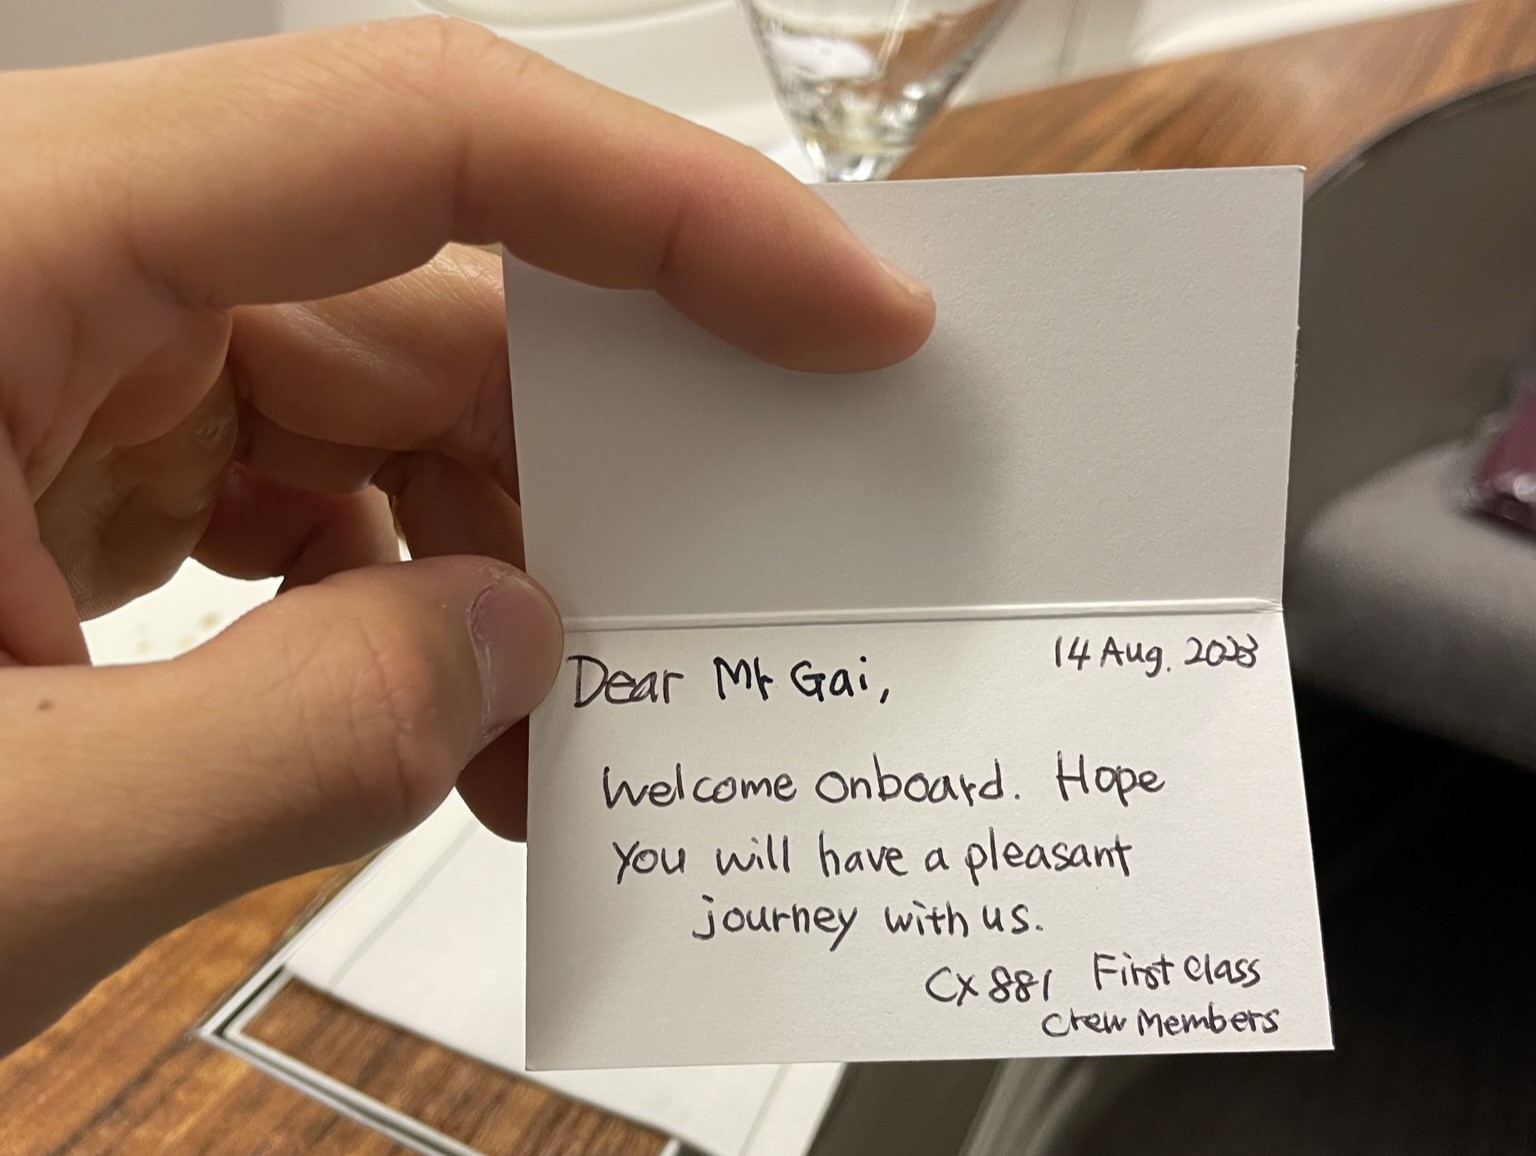 14 Aug. 2023
Dear Mr Gai,
Welcome onboard. Hope
you will have a pleasant
journey with us.
CX 881 First Class
Crew Members